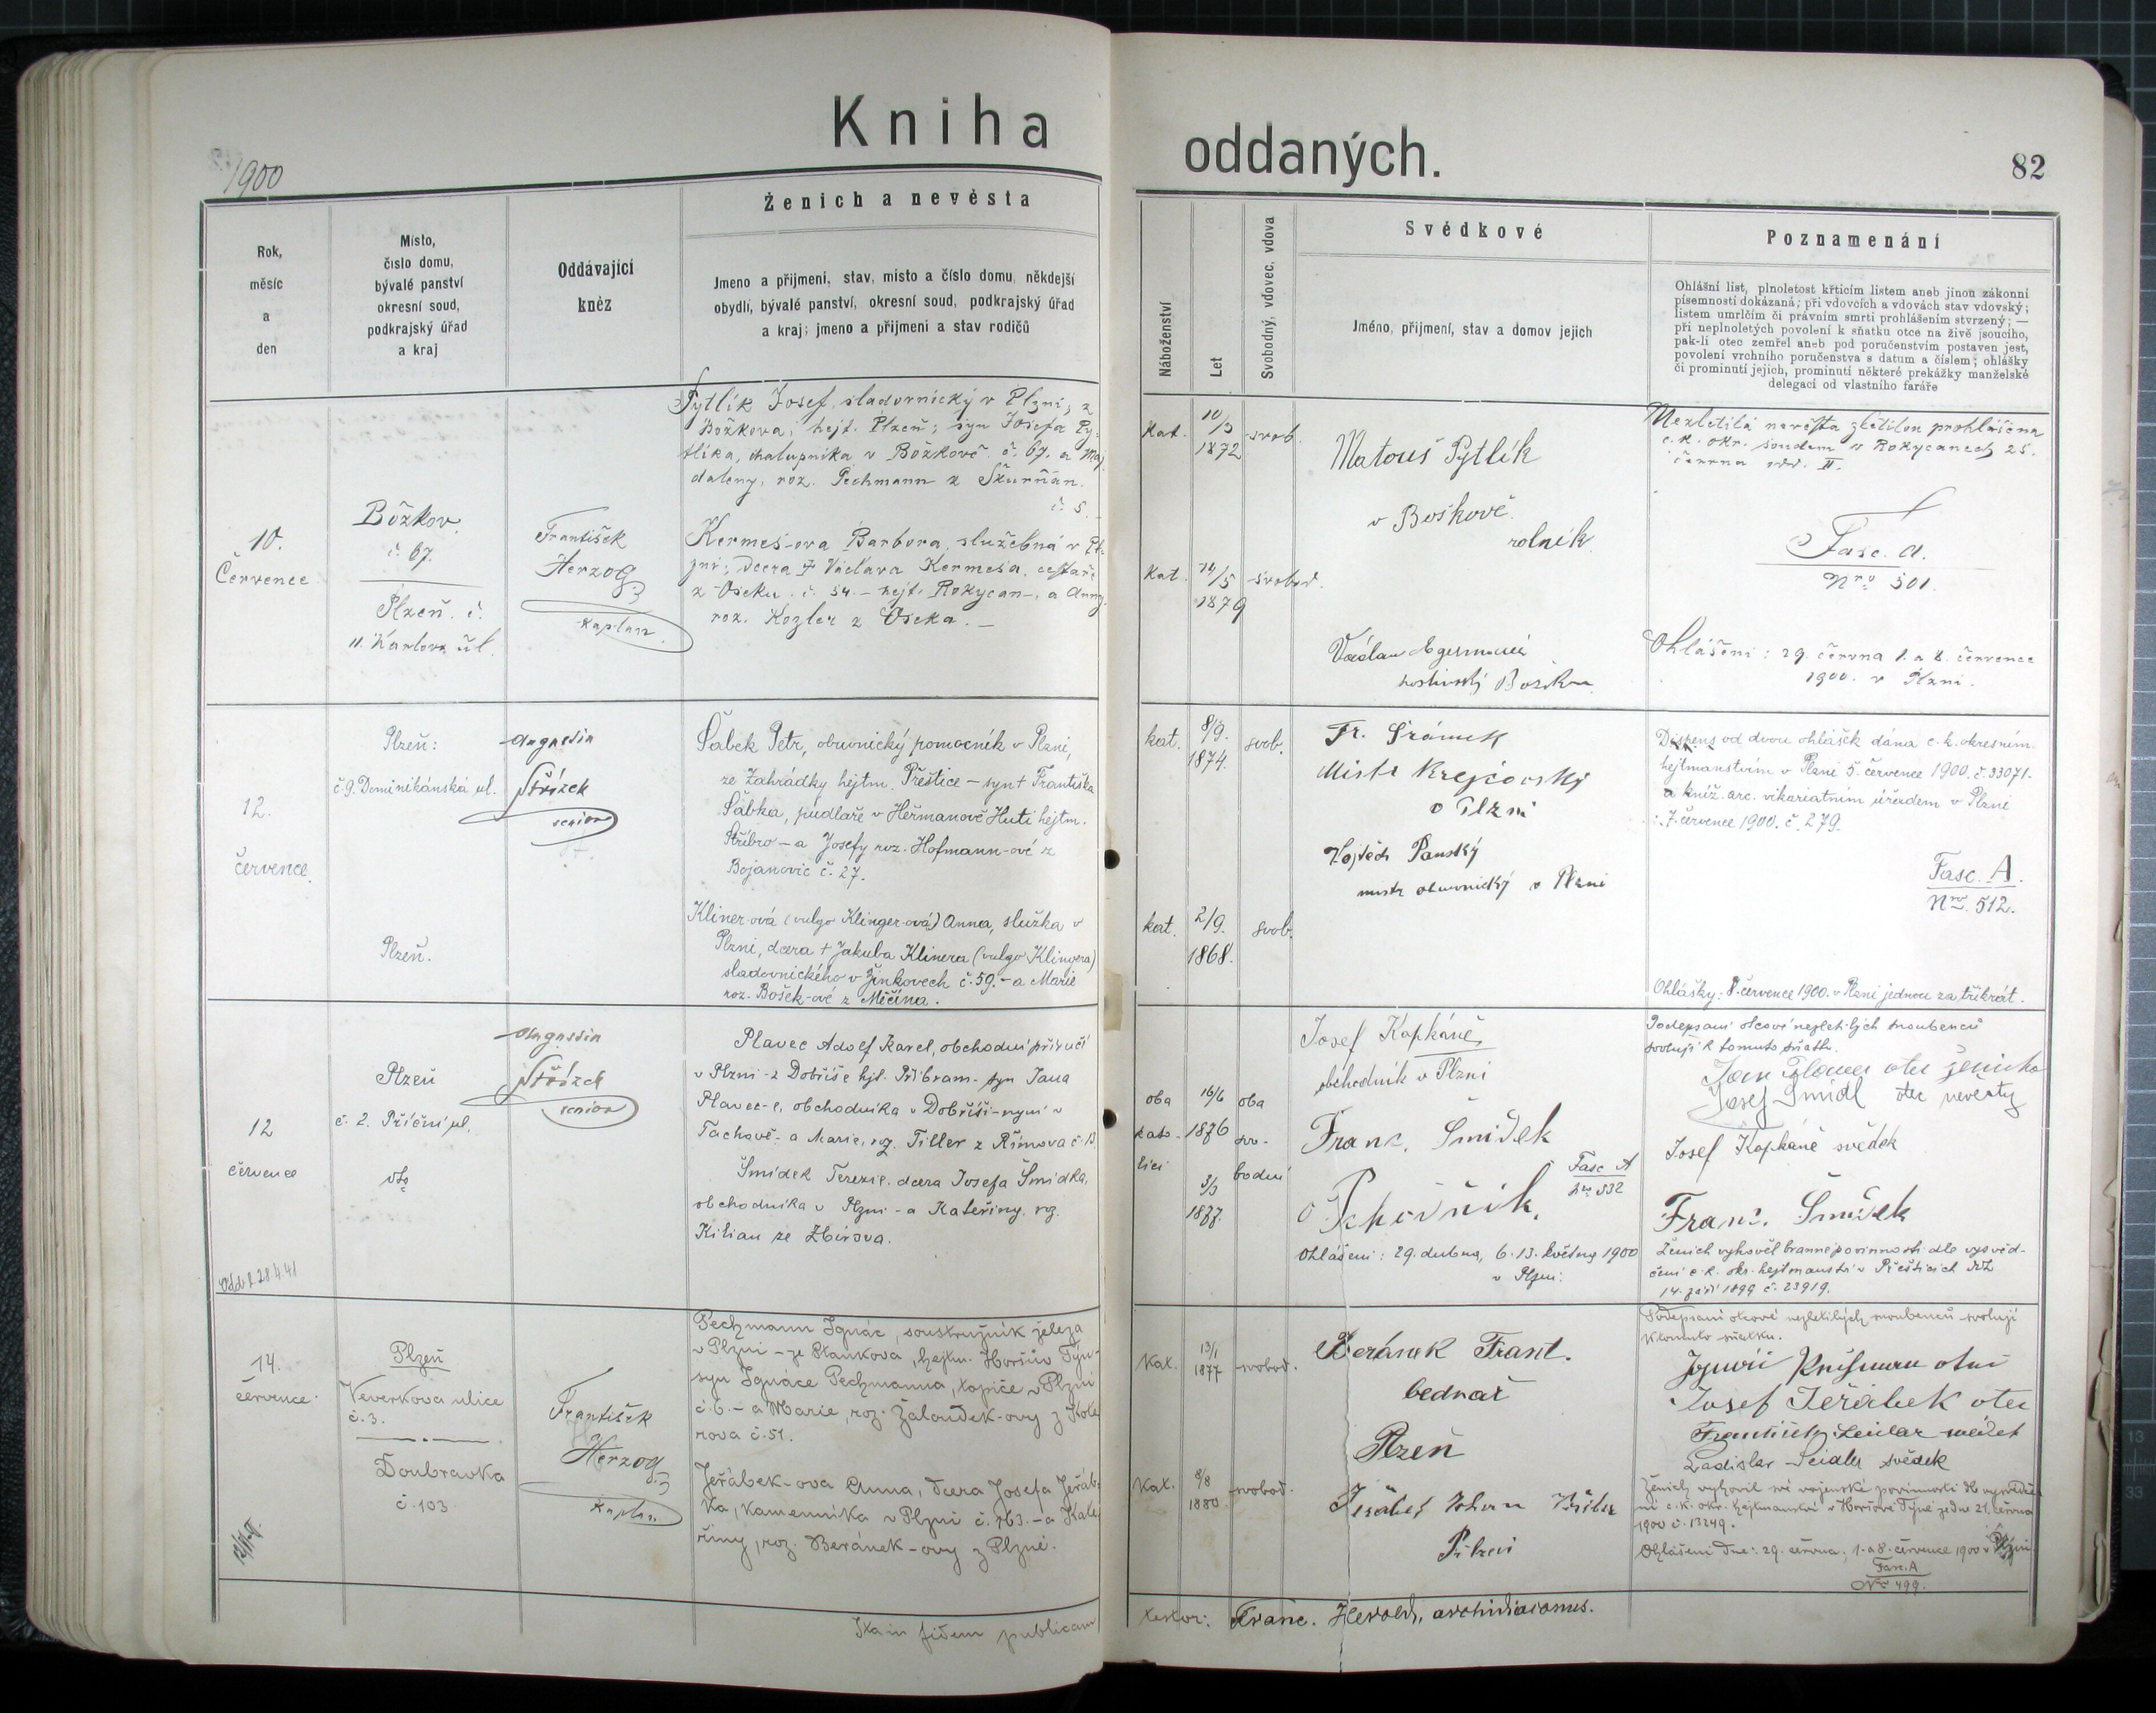 Kniha
oddaných.
1900
82
Rok,
měsíc
a
den
Místo,
číslo domu,
bývalé panství
okresní soud,
podkrajský úřad
a kraj
Oddávající
kněz
Ženich a nevěsta
Jmeno a přijmení, stav, místo a číslo domu, někdejší
obydlí, bývalé panství, okresní soud, podkrajský úřad
a kraj; jmeno a přijmeni a stav rodičů
Náboženství
Let
Svobodný, vdovec, vdova
Svědkové
Jméno, přijmení, stav a domov jejich
Poznamenání
Ohlášní list, plnoletost křticím listem aneb jinou zákonní
písemností dokázaná; při vdovcích a vdovách stav vdovský;
listem umrlčím či právním smrti prohlášením stvrzený; —
při neplnoletých povolení k sňatku otce na živě jsoucího,
pak-li otec zemřel aneb pod poručenstvím postaven jest,
povolení vrchního poručenstva s datum a číslem; ohlášky
či prominutí jejich, prominutí některé prekážky manželské
delegací od vlastního faráře
10.
Července
Božkov
č. 67.
Plzeň. č.
11. Karlova ul.
František
Herzog
kaplan
Pytlík Josef, sladovnický v Plzni, z
Božkova, hejt. Plzeň; syn Josefa Py-
tlíka, chalupníka v Božkově č. 67. a Maj-
daleny, roz. Pechmann z Škurňan.
č. 5.
Kermeš-ova Barbora, služebná v Pl-
zni; dcera † Václava Kermeša, cestaře
z Oseku. č. 54. – hejt. Rokycan –, a Anny
roz. Kozler z Oseka. –
kat.
10/3
1872
svob.
Kat.
14/5
1879
svobod.
Matouš Pytlík
v Boškově
rolník
Václav
hostinský
Nezletilá nevěsta zletilou prohlášena
c. k. okr. soudem v Rokycanech 25.
června odd. II.
Fasc. A.
Nro 501.
Ohlášeni: 29. června 1. a 8. července
1900. v Plzni.
12.
července.
Plzeň:
č. 9. Dominikánská ul.
Plzeň.
Augustin
Střízek
senior
Šabek Petr, obuvnický pomocník v Plzni,
ze Zahrádky hejtm. Přeštice – syn † Františka
Šábka, pudlaře v Heřmanově Huti hejtm.
Stříbro – a Josefy roz. Hofmann-ové z
Bojanovic č. 27.
Kliner-ová (vulgo Klinger-ová) Anna, služka v
Plzni, dcera † Jakuba Klinera (vulgo Klingera)
sladovnického v Žinkovech č. 59. – a Marie
roz. Bošek-ové z Měčína.
kat.
8/9.
1874.
svob.
kat.
2/9.
1868.
svob.
Fr. Šrámek
Mistr Krejčovský
v Plzni
Vojtěch Panský
mistr obuvnický v Plzni
Dispens od dvou ohlášek dána c. k. okresním
hejtmanstvím v Plzni 5. července 1900. č. 33071.
a kníž. arc. vikariatním úřadem v Plzni
7. července 1900. č. 279.
Fasc. A.
Nro. 512.
Ohlášky: 8. července 1900. v Plzni jednou za třikrát.
12
července
Plzeň
č. 2. Příční ul.
Augustin
Střízek
senior
Plavec Adolf Karel, obchodní příručí
v Plzni – z Dobříše hjt. Příbram – syn Jana
Plavec-e, obchodníka v Dobříši – nyní v
Tachově – a Marie, roz. Tiller z Římova č. 13.
Šmídek Terezie, dcera Josefa Šmídka,
obchodníka v Plzni – a Kateřiny, roz.
Kilian ze Zbirova.
28.4.41
oba
kato-
líci
16/6
1876
3/3
1877.
oba
svo-
bodni
Josef Kopkáně
obchodník v Plzni
Franc. Šmídek
Fasc A
Nro 532
Ohlášeni: 29. dubna, 6. 13. května 1900
v Plzni.
Podepsaní otcové nezletilých snoubenců
svolují k tomuto sňatku.
Jan Plavec otec ženicha
Josef Šmídl otec nevěsty
Josef Kopkáně svědek
Franc. Šmídek
Ženich vyhověl branné povinnosti dle vysvěd-
čení c. k. okr. hejtmanství v Přešticích
14. září 1899 č. 23919.
14.
července
Plzeň
Veverkova ulice
č. 3.
Doubravka
č. 103.
František
Herzog
kaplan
Pechmann Ignác, soustružník železa
v Plzni – ze Stankova, hejtm. Horšův Týn –
syn Ignáce Pechmanna, topiče v Plzni
č. 6. – a Marie, roz. Žaloudek-ovy z Kote-
rova č. 51.
Jeřábek-ova Anna, dcera Josefa Jeřáb-
ka, kameníka v Plzni č. 163. – a Kate-
řiny, roz. Beránek-ovy z Plzně.
Kat.
13/1
1877
svobod.
Kat.
8/8
1880.
svobod.
Beránek Frant.
bednař
Plzeň
Podepsaní otcové nezletilých snoubenců svolují
k tomuto sňatku.
Josef Jeřábek otec
Ladislav Seidler svědek
Ženich vyhověl své vojenské povinnosti dle vysvědče-
ní c. k. okr. hejtmanství v Horšově Týně ze dne 21. června
1900 č. 13249.
Ohlášeni dne: 29. června, 1. a 8. července 1900 v Plzni
Fasc. A
Nro 499.
In fidem publicam
testor: Franc. Herold, archidiaconus.